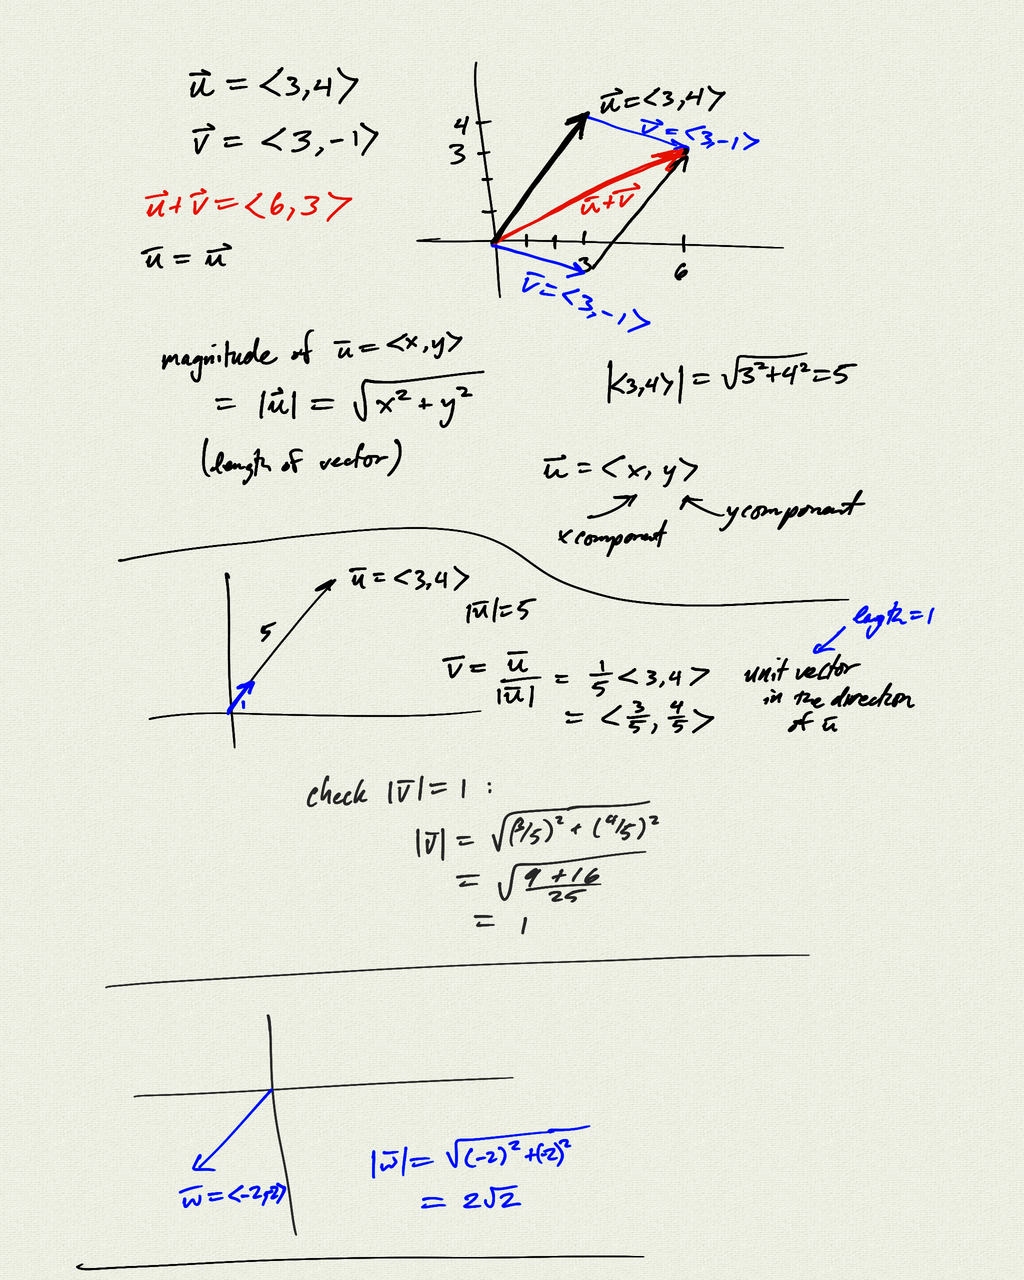 u⃗ = <3,4>
v⃗ = <3,-1>
u⃗+v⃗ = <6,3>
ū = u⃗
u⃗=<3,4>
v⃗=<3,-1>
4
3
ū+v⃗
3
6
v̄=<3,-1>
magnitude of ū = <x,y>
= |u⃗| = √(x² + y²)
(length of vector)
|<3,4>| = √(3²+4²) = 5
u⃗ = <x, y>
x component
y component
ū = <3,4>
|ū|=5
5
1
v̄ = ū/|ū| = 1/5 <3,4>
= <3/5, 4/5>
length=1
unit vector
in the direction
of ū
check |v̄| = 1 :
|v̄| = √((3/5)² + (4/5)²)
= √((9+16)/25)
= 1
w̄ = <-2,-2>
|w̄| = √((-2)² + (-2)²)
= 2√2